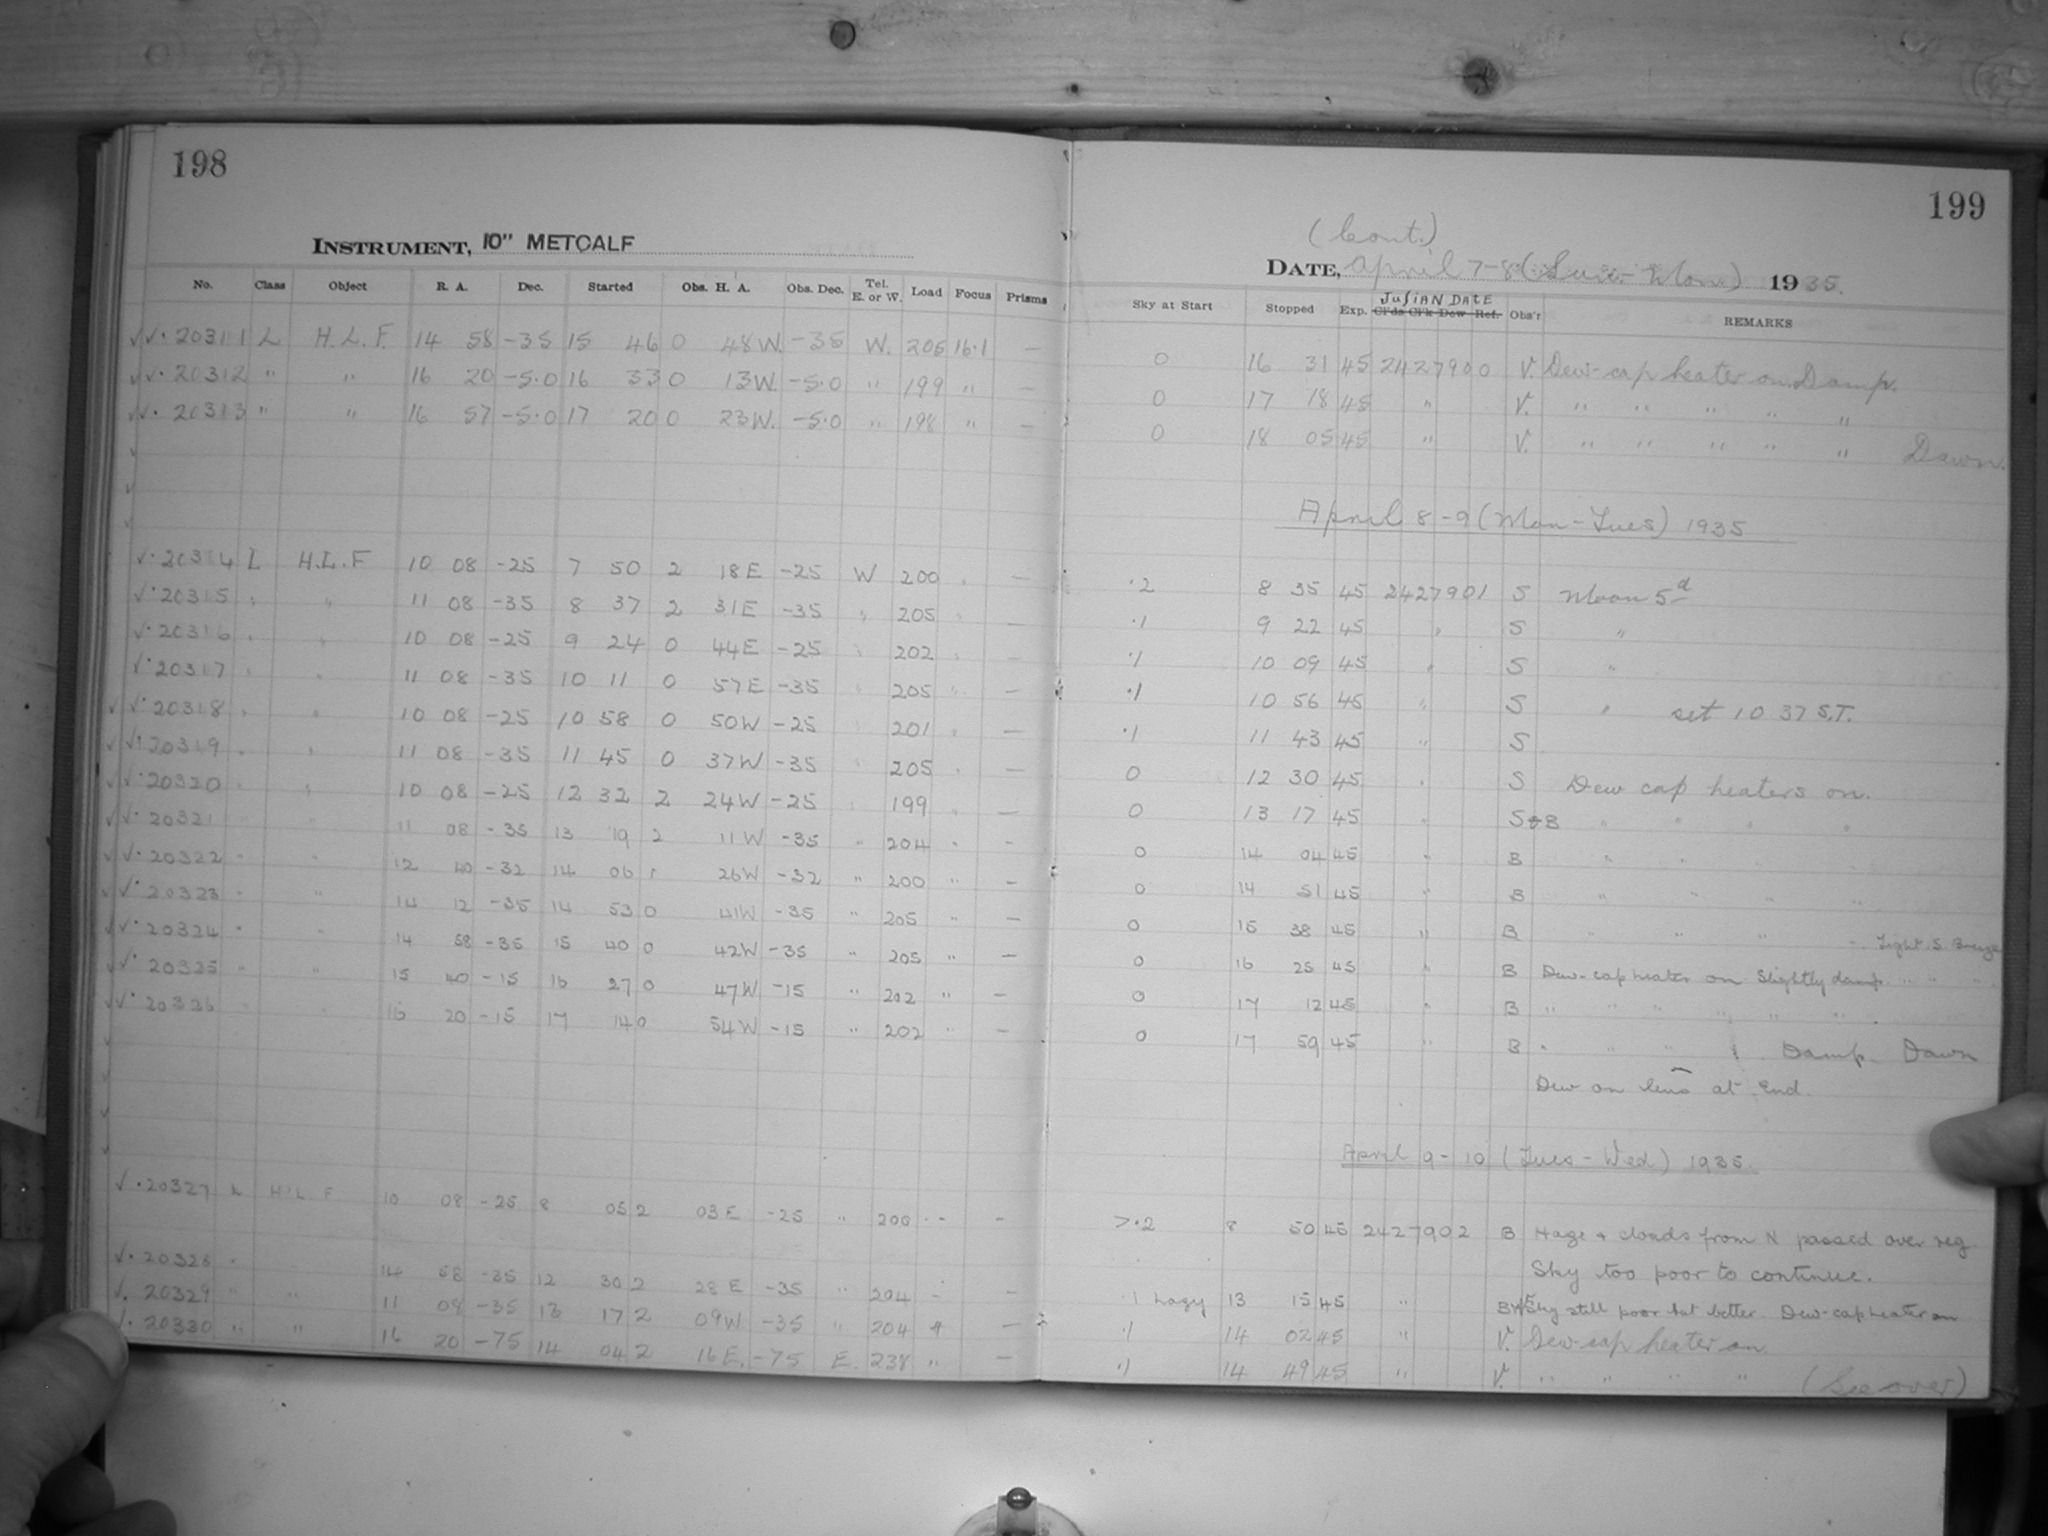 198
INSTRUMENT, 10" METCALF
No. Class Object R. A. Dec. Started Obs. H. A. Obs. Dec. Tel. E. or W. Load Focus Prisms
√√· 20311 L H.L.F. 14 58 -35 15 46 0 48W. -35 W. 205 16·1 —
√√· 20312 " " 16 20 -5·0 16 33 0 13W. -5·0 " 199 " —
√√· 20313 " " 16 57 -5·0 17 20 0 23W. -5·0 " 198 " —
√· 20314 L H.L.F 10 08 -25 7 50 2 18E -25 W 200 —
√· 20315 " " 11 08 -35 8 37 2 31E -35 " 205 —
√· 20316 " " 10 08 -25 9 24 0 44E -25 " 202 —
√· 20317 " " 11 08 -35 10 11 0 57E -35 " 205 " —
√√· 20318 " " 10 08 -25 10 58 0 50W -25 201 " —
√√· 20319 " " 11 08 -35 11 45 0 37W -35 205 " —
√√· 20320 " " 10 08 -25 12 32 2 24W -25 199 " —
√√· 20321 " " 11 08 -35 13 19 2 11W -35 " 204 " -
√√· 20322 " " 12 40 -32 14 06 1 26W -32 " 200 " —
√√· 20323 " " 14 12 -35 14 53 0 41W -35 " 205 " —
√√· 20324 " " 14 58 -35 15 40 0 42W -35 " 205 " —
√√· 20325 " " 15 40 -15 16 27 0 47W -15 " 202 " —
√√· 20326 " 16 20 -15 17 14 0 54W -15 " 202 " —
√· 20327 L H.L.F 10 08 -25 8 05 2 03E -25 " 200 -- -
√· 20328 " 14 58 -35 12 30 2 28E -35 " 204 - -
√. 20329 " " 11 08 -35 13 17 2 09W -35 " 204 " —
√. 20330 " " 16 20 -75 14 04 2 16E. -75 E. 238 " —
199
(Cont.)
DATE, April 7-8 (Sun.- Mon.) 1935.
Sky at Start Stopped Exp. JULIAN DATE Cl'ds Cl'k Dew Ref. Obs'r REMARKS
0 16 31 45 2427900 V. Dew-cap heater on. Damp.
0 17 18 45 " V. " " " " "
0 18 05 45 " V. " " " " " Dawn.
April 8-9 (Mon-Tues) 1935
·2 8 35 45 2427901 S Moon 5d
·1 9 22 45 " S "
·1 10 09 45 " S "
·1 10 56 45 " S " set 10 37 S.T.
·1 11 43 45 " S
0 12 30 45 " S Dew cap heaters on.
0 13 17 45 " S+B " " " "
0 14 04 45 " B " "
0 14 51 45 " B " " " "
0 15 38 45 " B " " " " Light S. Breeze
0 16 25 45 " B Dew-cap heater on Slightly damp. " " "
0 17 12 45 " B " " " " " "
0 17 59 45 " B " " " " Damp - Dawn
Dew on lens at End.
April 9-10 (Tues-Wed) 1935.
>·2 8 50 45 2427902 B Haze + clouds from N passed over reg
Sky too poor to continue.
·1 hazy 13 15 45 " Sky still poor but better. Dew-cap heater on
·1 14 02 45 " V. Dew-cap heater on
·1 14 49 45 " V. " " " " (See over)